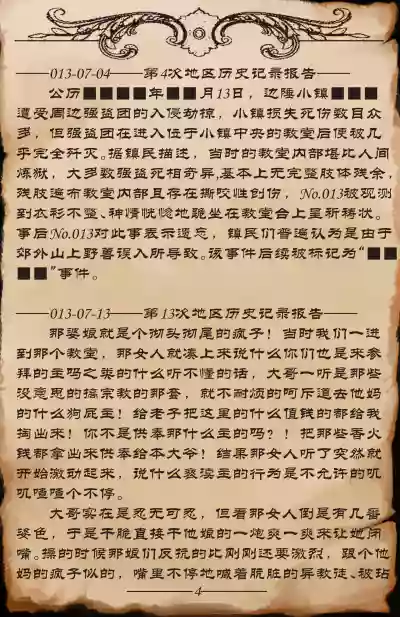 ——013-07-04——第4次地区历史记录报告——
公历■■■■年■■月13日，边陲小镇■■■
遭受周边强盗团的入侵劫掠，小镇损失死伤数目众
多，但强盗团在进入位于小镇中央的教堂后便被几
乎完全歼灭。据镇民描述，当时的教堂内部堪比人间
炼狱，大多数强盗死相奇异,基本上无完整肢体残余，
残肢遍布教堂内部且存在撕咬性创伤，No.013被观测
到衣衫不整、神情恍惚地跪坐在教堂台上呈祈祷状。
事后No.013对此事表示遗忘，镇民们普遍认为是由于
郊外山上野兽误入所导致。该事件后续被标记为“■■
■■”事件。
——013-07-13——第13次地区历史记录报告——
那婆娘就是个彻头彻尾的疯子！当时我们一进
到那个教堂，那女人就凑上来说什么你们也是来参
拜的主吗之类的什么听不懂的话，大哥一听是那些
没意思的搞宗教的那套，就不耐烦的呵斥道去他妈
的什么狗屁主！给老子把这里的什么值钱的都给我
掏出来！你不是供奉那什么主的吗？！把那些香火
钱都拿出来供奉给本大爷！结果那女人听了突然就
开始激动起来，说什么亵渎主的行为是不允许的叽
叽喳喳个不停。
大哥实在是忍无可忍，但看那女人倒是有几番
姿色，于是干脆直接干他娘的一炮爽一爽来让她闭
嘴。操的时候那娘们反抗的比刚刚还要激烈，跟个他
妈的疯子似的，嘴里不停地喊着肮脏的异教徒、被玷
4